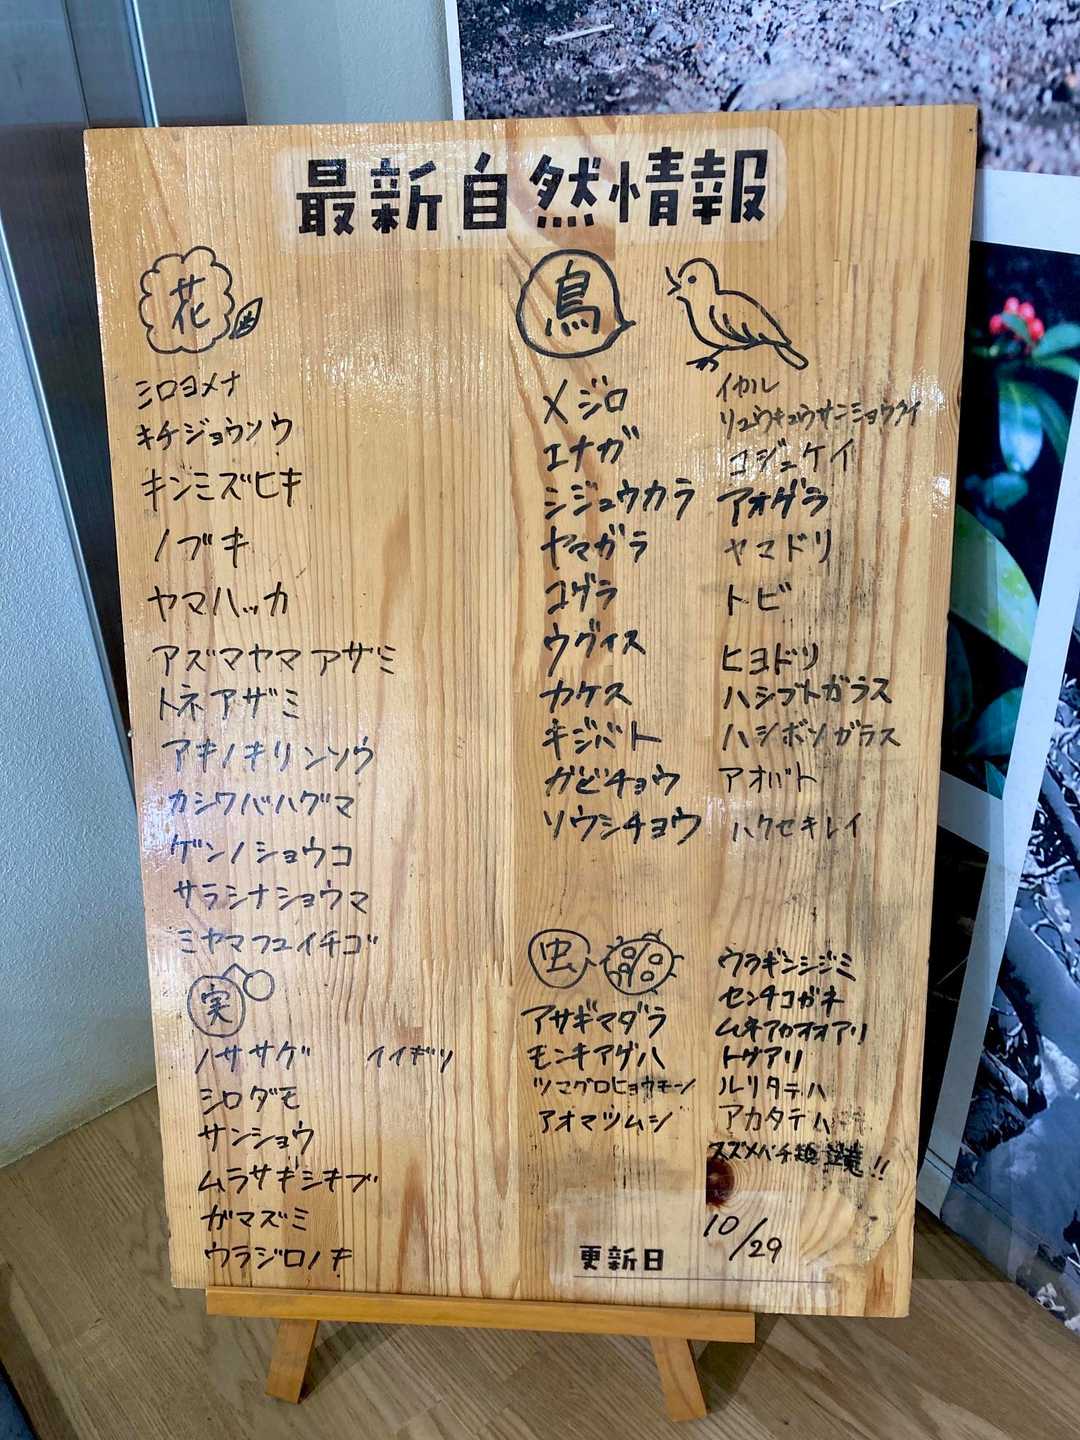 最新自然情報
花
シロヨメナ
キチジョウソウ
キンミズヒキ
ノブキ
ヤマハッカ
アズマヤマアザミ
トネアザミ
アキノキリンソウ
カシワバハグマ
ゲンノショウコ
サラシナショウマ
ミヤマフユイチゴ
実
ノササゲ イイギリ
シロダモ
サンショウ
ムラサキシキブ
ガマズミ
ウラジロノキ
鳥
メジロ
エナガ
シジュウカラ
ヤマガラ
コゲラ
ウグイス
カケス
キジバト
ガビチョウ
ソウシチョウ
イカル
リュウキュウサンショウクイ
コジュケイ
アオゲラ
ヤマドリ
トビ
ヒヨドリ
ハシブトガラス
ハシボソガラス
アオバト
ハクセキレイ
虫
アサギマダラ
モンキアゲハ
ツマグロヒョウモン
アオマツムシ
ウラギンシジミ
センチコガネ
ムネアカオオアリ
トゲアリ
ルリタテハ
アカタテハ
スズメバチ類 注意!!
更新日 10/29